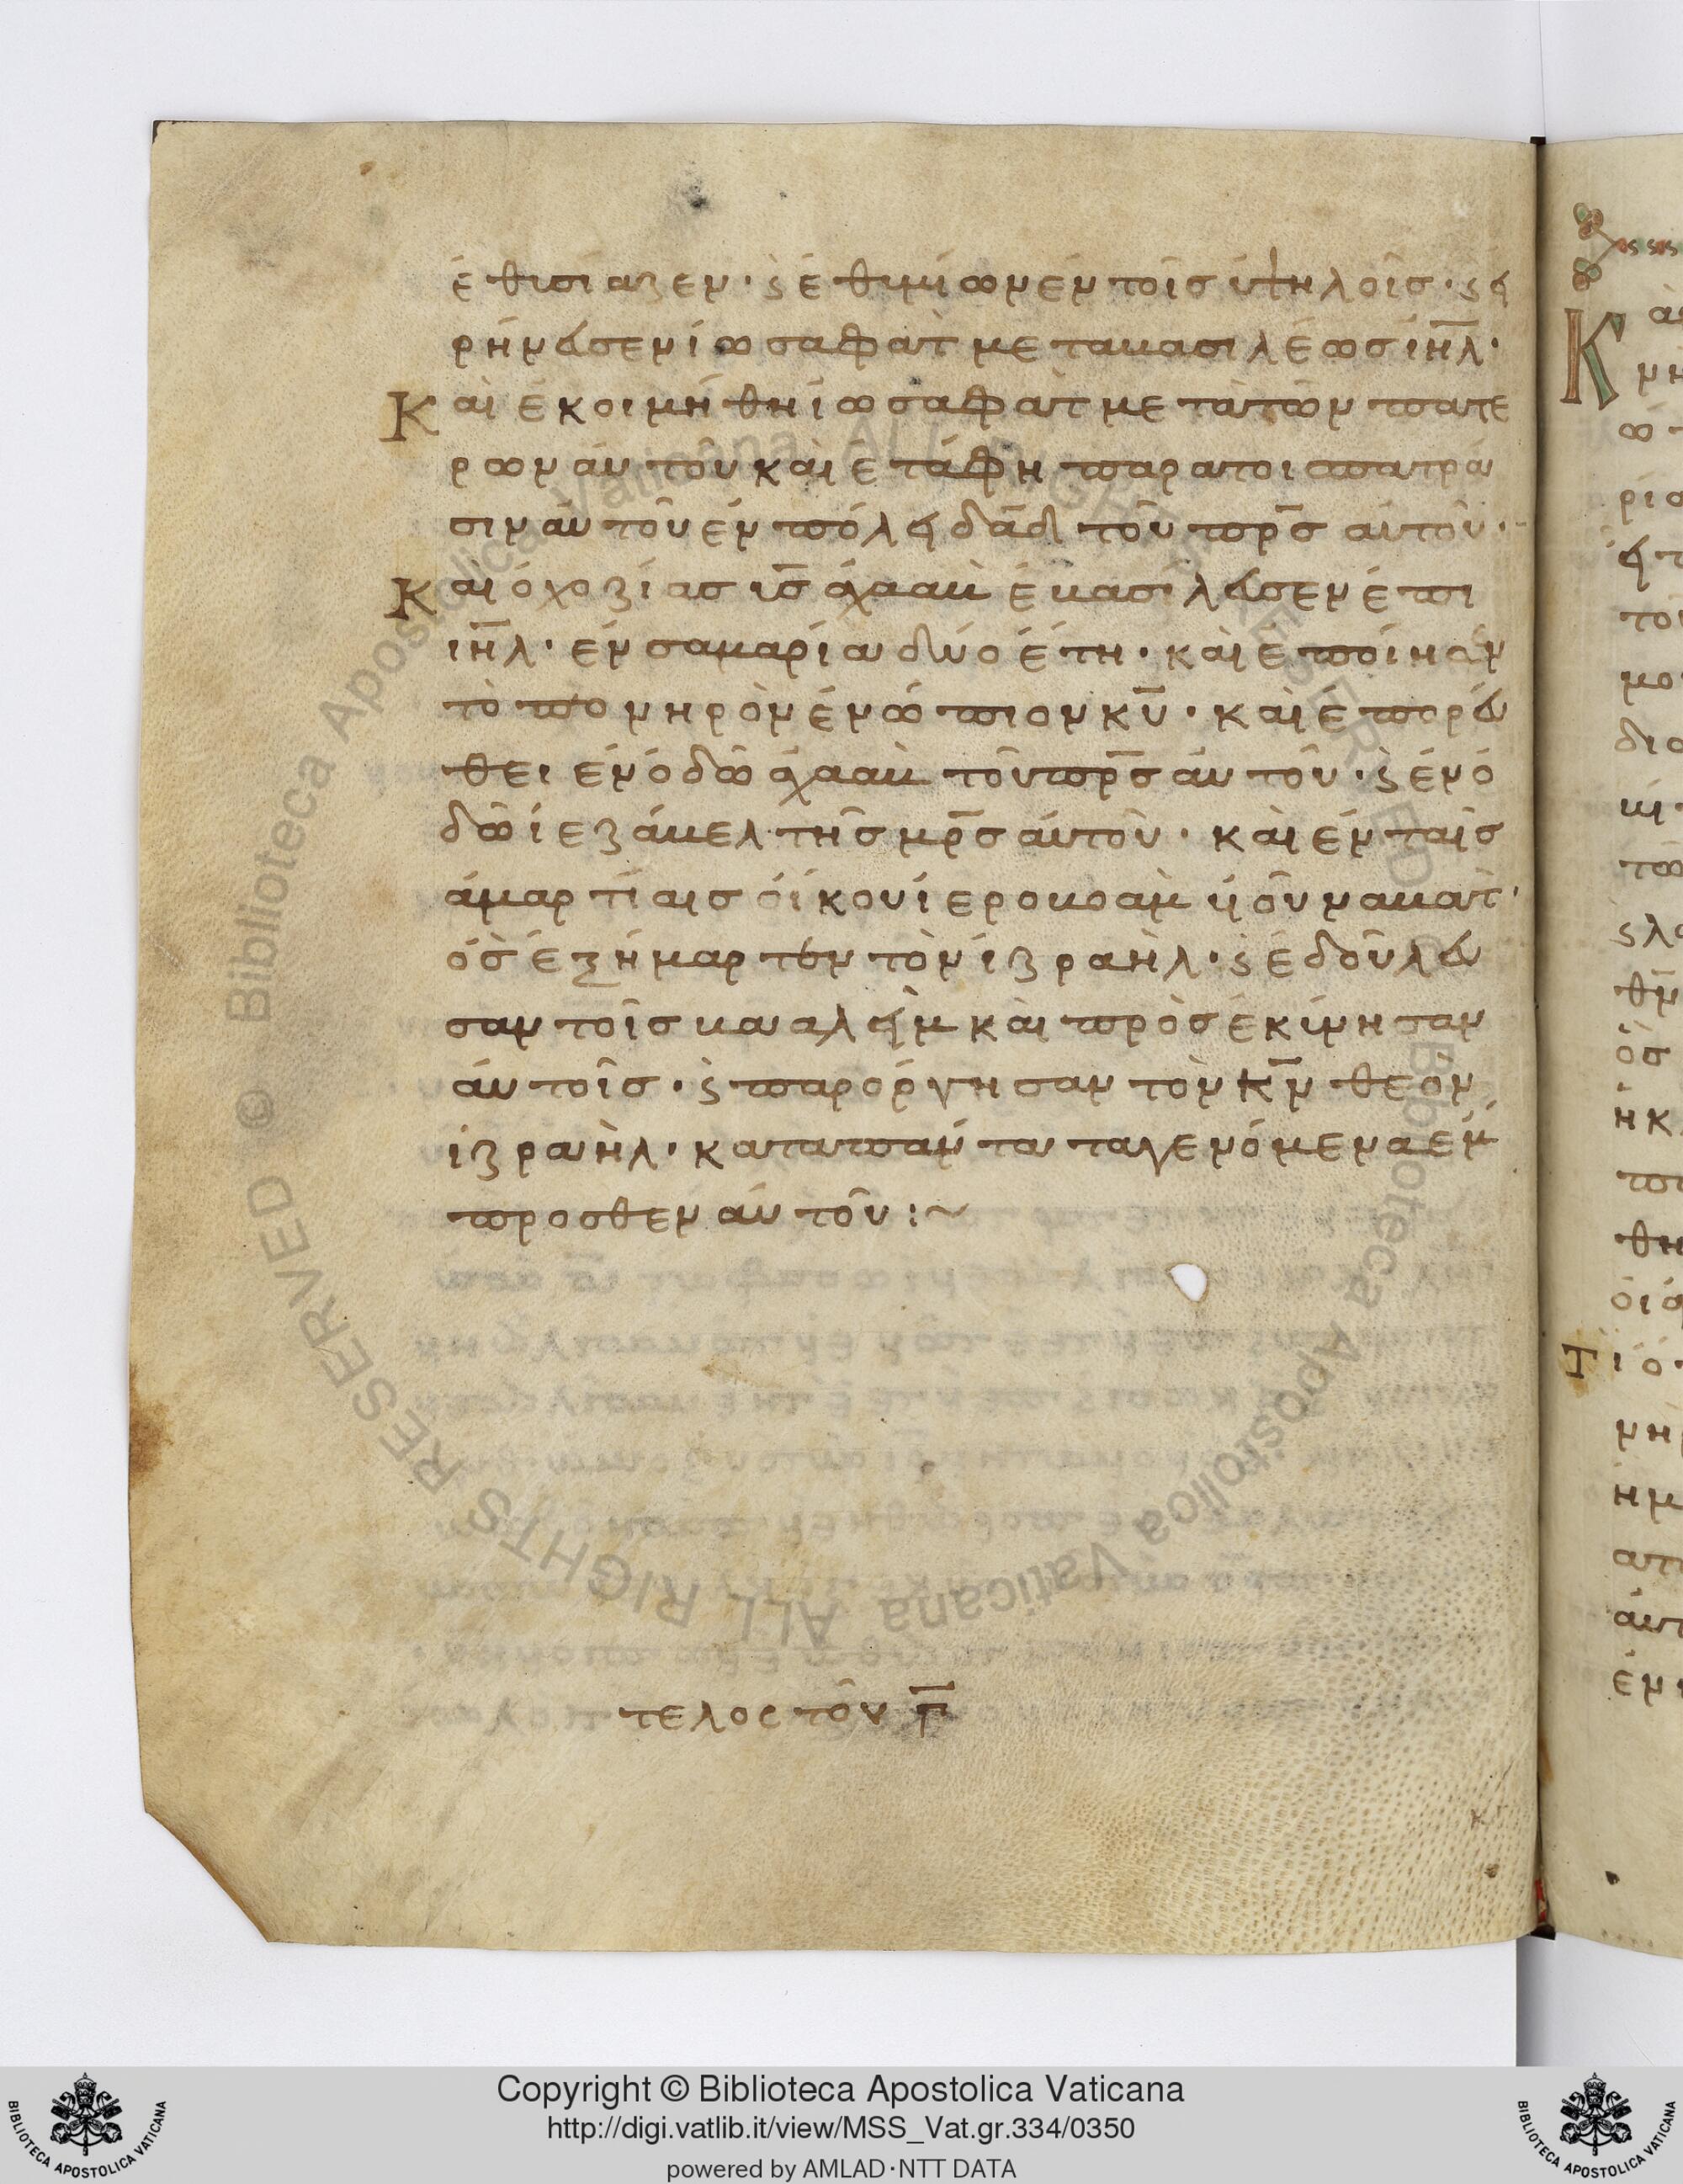 ἐθυσίαζεν· ϛ ἐθυμίων ἐν τοῖσ ὑψηλοῖσ· ϛ εἰ
ρήνευσεν ἰωσαφὰτ μετα βασιλέωσ ἰη̅λ·
Καὶ ἐκοιμήθη ἰωσαφὰτ μετὰ τῶν πατε
ρων αὐτοῦ καὶ ἐτάφη παρα τοισ πατρά
σιν αὐτοῦ ἐν πόλει δα̅δ τοῦ πρ̅σ αὐτοῦ·
Καὶ ὀχοζίασ υι̅σ ἀχαὰβ ἐβασίλευσεν ἐπι
ιη̅λ· ἐν σαμαρία δύο ἔτη· καὶ ἐποίησεν
τὸ πονηρὸν ἐνώπιον κ̅υ· καὶ ἐπορεύ
θει ἐν ὁδῶ ἀχαὰβ τοῦ πρ̅σ αὐτοῦ· ϛ ἐν ὁ
δῶ ἰεζάβελ τῆσ μρ̅σ αὐτοῦ· καὶ ἐν ταῖσ
ἁμαρτίαισ οἴκου ἱεροβοὰμ ὑιοῦ ναβὰτ·
ὃσ ἐξήμαρτεν τὸν ἰζραὴλ· ϛ ἐδούλευ
σαν τοῖσ βααλεὶμ καὶ πρὸσἐκύνησαν
αὐτοῖσ· ϛ παρόργησαν τὸν κ̅ν θεὸν
ἰζραὴλ· κατα πάντα τα γενόμενα ἔμ
προσθεν αὐτοῦ:~
τελος τοῦ
Copyright © Biblioteca Apostolica Vaticana
http://digi.vatlib.it/view/MSS_Vat.gr.334/0350
powered by AMLAD·NTT DATA
BIBLIOTECA APOSTOLICA VATICANA
BIBLIOTECA APOSTOLICA VATICANA